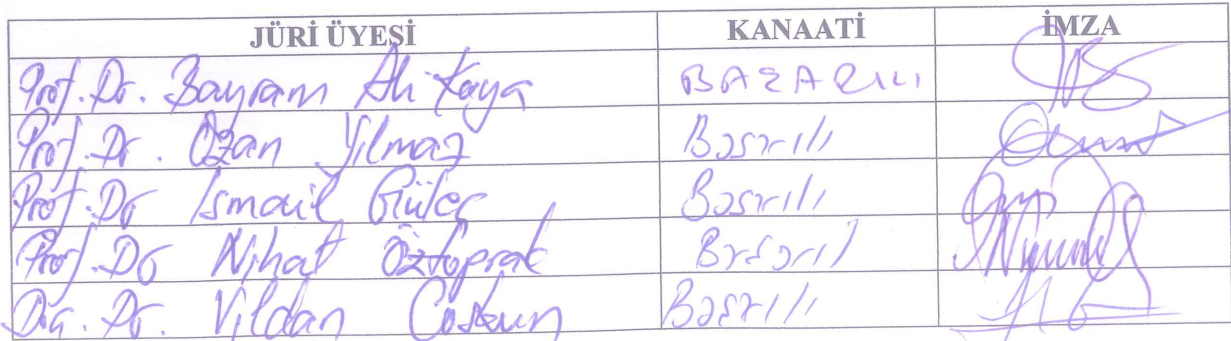 JÜRİ ÜYESİ KANAATİ İMZA
Prof. Dr. Bayram Ali Kaya BAŞARILI
Prof. Dr. Ozan Yılmaz Başarılı
Prof. Dr İsmail Güleç Başarılı
Prof. Dr Nihat Öztoprak Başarılı
Doç. Dr. Vildan Coşkun Başarılı